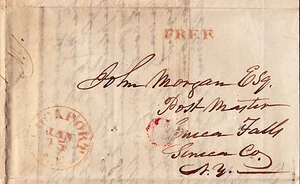 FREE
John Morgan Esq.
Post Master
Seneca Falls
Seneca Co.
N.Y.
JAN